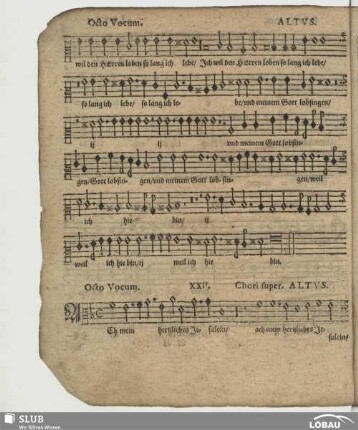 Octo Vocum. ALTVS.
wil den HErren loben so lang ich lebe/ Ich wil den HErren loben so lang ich lebe/
so lang ich lebe/ so lang ich le- be/und meinem Gott lobsingen/
ij ij und meinem Gott lobsin-
gen/Gott lobsin- gen/und meinem Gott lob- sin- gen/weil
ich hie bin/ ij
weil ich hie bin/ij weil ich hie bin.
Octo Vocum. XXII. Chori super. ALTVS.
Ch mein hertzliebes Je- sulein/ ach mein hertzliebes Je-
sulein/
SLUB
Wir führen Wissen.
LÖBAU